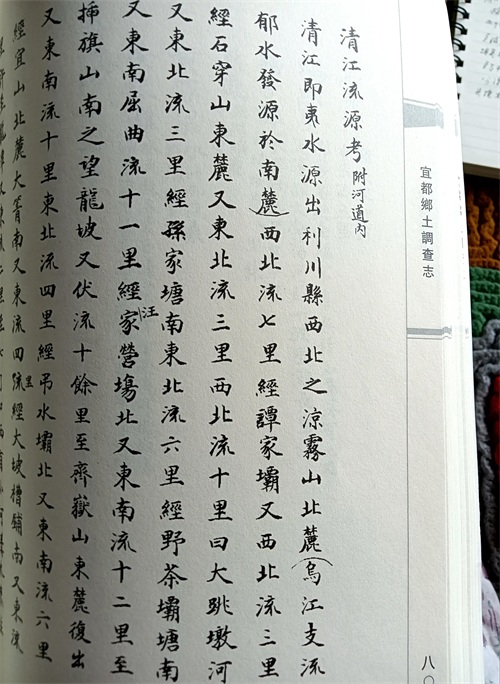 宜都鄉土調查志
八〇
清江流源考附河道內
清江即夷水源出利川縣西北之涼霧山北麓(烏江支流
郁水發源於南麓)西北流七里經譚家壩又西北流三里
經石穿山東麓又東北流三里西北流十里曰大跳墩河
又東北流三里經孫家塘南東北流六里經野茶壩塘南
又東南屈曲流十一里經汪家營塲北又東南流十二里至
揷旗山南之望龍坡又伏流十餘里至齊嶽山東麓復出
又東南流十里東北流四里經吊水壩北又東南流六里
經宜山北麓大箐南又東流四里經大坡槽鋪南又東流